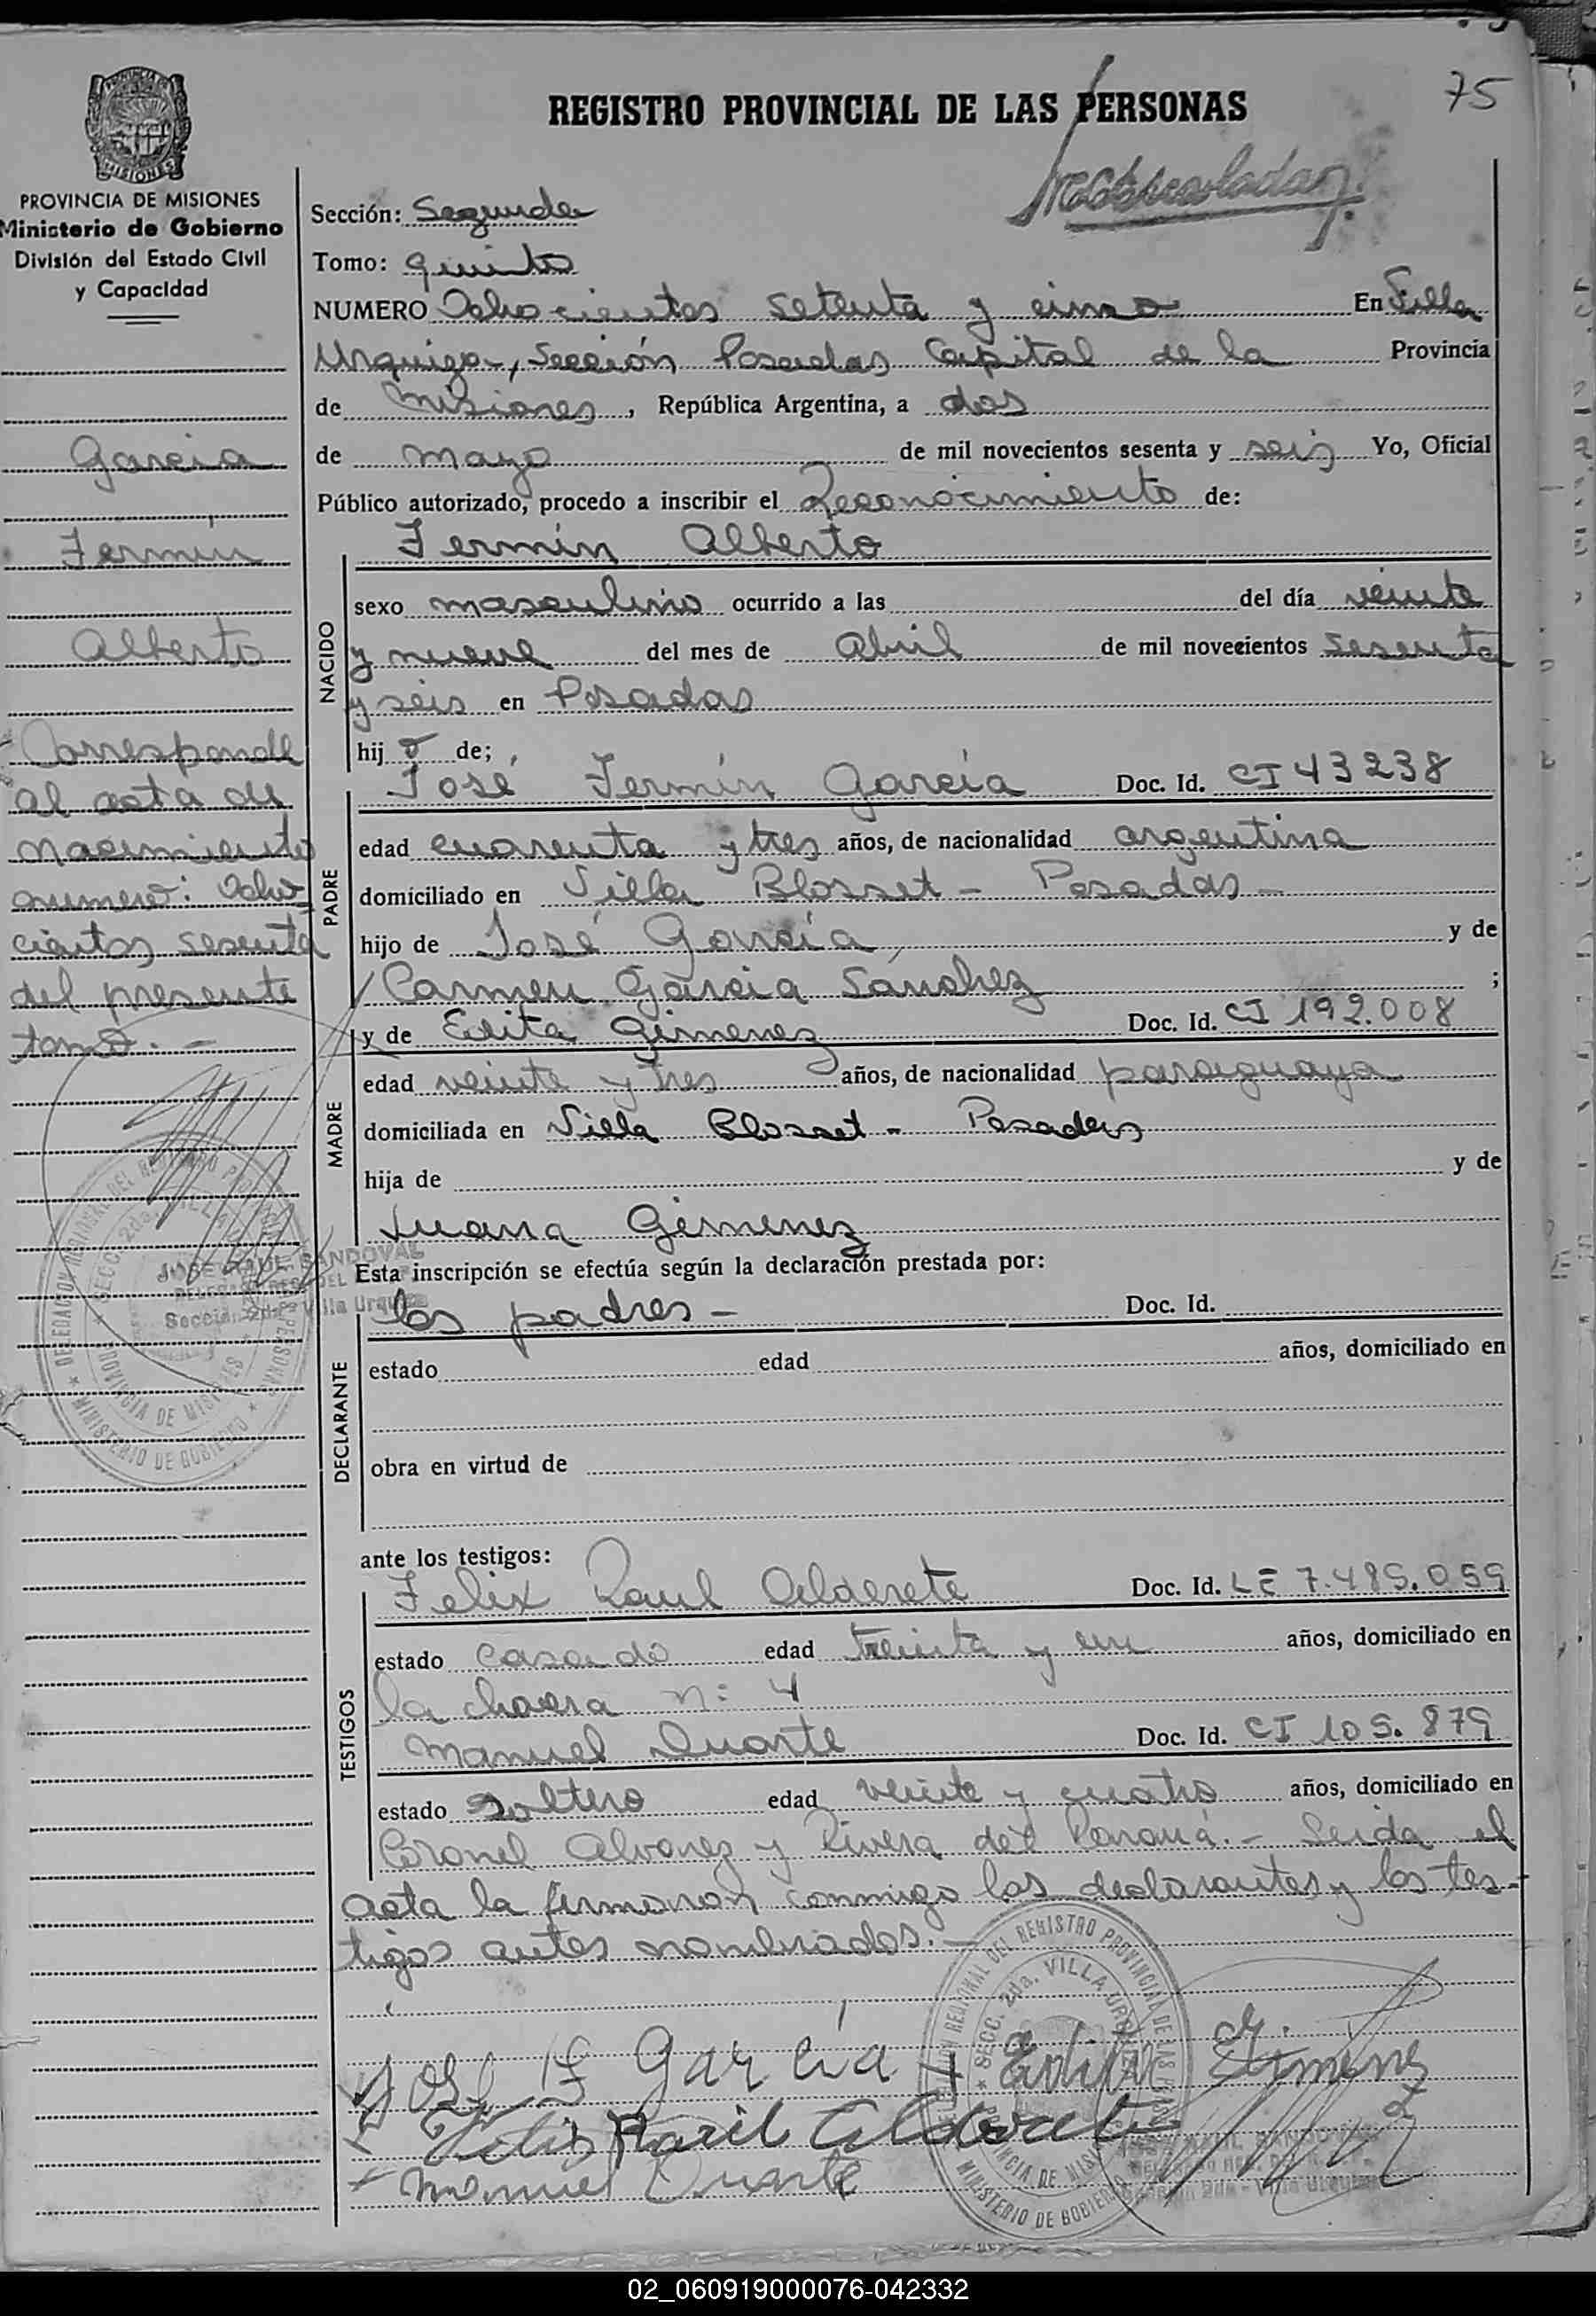 75
REGISTRO PROVINCIAL DE LAS PERSONAS
MISIONES
PROVINCIA DE MISIONES
Ministerio de Gobierno
División del Estado Civil
y Capacidad
Garcia
Fermin
Alberto
Corresponde
al acta de
nacimiento
numero: Ocho
cientos sesenta
del presente
tomo.-
Sección: Segunda
Tomo: Quinto
NUMERO Ochocientos setenta y cinco En Villa
Urquiza, Sección Posadas Capital de la Provincia
de Misiones, República Argentina, a dos
de mayo de mil novecientos sesenta y seis Yo, Oficial
Público autorizado, procedo a inscribir el Reconocimiento de:
Fermín Alberto
NACIDO
sexo masculino ocurrido a las del día veinte
y nueve del mes de Abril de mil novecientos sesenta
y seis en Posadas
hijo de;
PADRE
José Fermín García Doc. Id. CI 43238
edad cuarenta y tres años, de nacionalidad argentina
domiciliado en Villa Blosset - Posadas -
hijo de José García y de
Carmen García Sánchez ;
MADRE
y de Edita Gimenez Doc. Id. CI 192.008
edad veinte y tres años, de nacionalidad paraguaya
domiciliada en Villa Blosset - Posadas
hija de y de
Juana Gimenez
Esta inscripción se efectúa según la declaración prestada por:
DECLARANTE
los padres - Doc. Id.
estado edad años, domiciliado en
obra en virtud de
ante los testigos:
TESTIGOS
Felix Raul Alderete Doc. Id. LE 7.485.059
estado casado edad treinta y un años, domiciliado en
la chacra n: 4
Manuel Duarte Doc. Id. CI 105.879
estado soltero edad veinte y cuatro años, domiciliado en
Coronel Alvarez y Rivera del Paraná.- Leida el
acta la firmaron conmigo los declarantes y los tes-
tigos antes nombrados.-
José F García
Felix Raul Alderete
Manuel Duarte
DELEGACION REGIONAL DEL REGISTRO PROVINCIAL DE LAS PERSONAS
SECC. 2da. VILLA URQUIZA
PROVINCIA DE MISIONES
MINISTERIO DE GOBIERNO
02_060919000076-042332